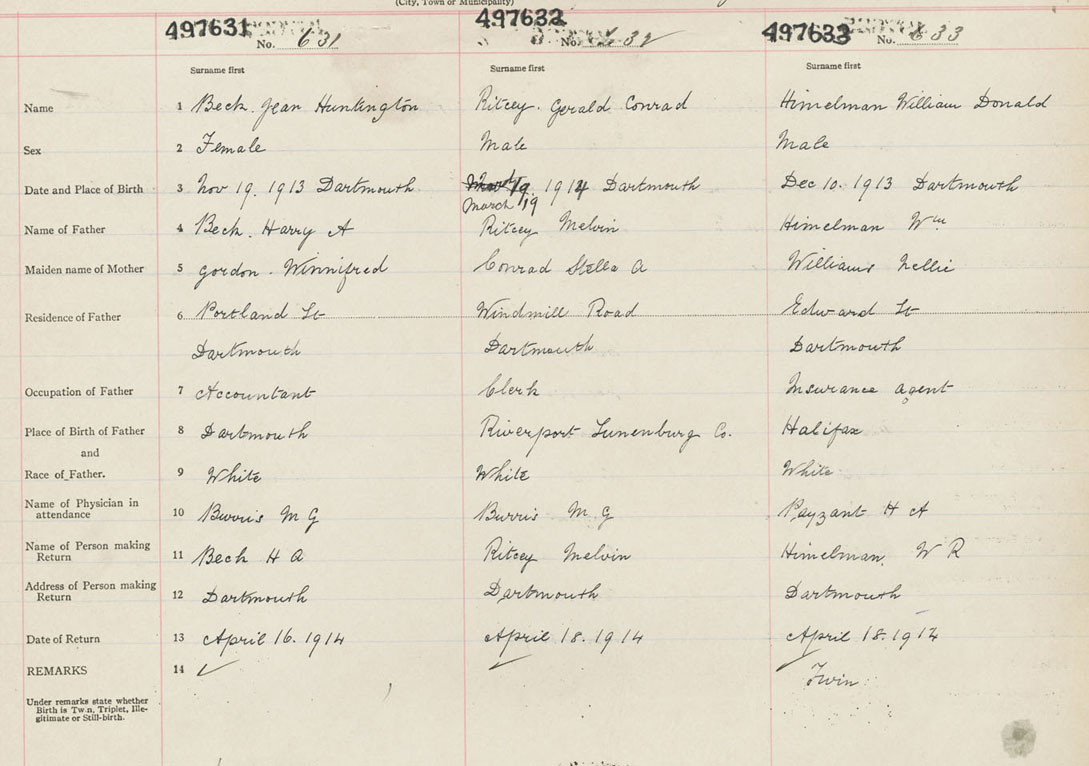 (City, Town or Municipality)
497631 497632 497633
No. 631 No. 632 No. 633
Surname first Surname first Surname first
Name 1 Beck. Jean Huntington Ritcey. Gerald Conrad Himelman William Donald
Sex 2 Female Male Male
Date and Place of Birth 3 Nov 19. 1913 Dartmouth 19. 1914 Dartmouth Dec 10. 1913 Dartmouth
March 19
Name of Father 4 Beck. Harry A Ritcey Melvin Himelman Wm
Maiden name of Mother 5 Gordon. Winnifred Conrad Stella A Williams Nellie
Residence of Father 6 Portland St Windmill Road Edward St
Dartmouth Dartmouth Dartmouth
Occupation of Father 7 Accountant Clerk Insurance agent
Place of Birth of Father 8 Dartmouth Riverport Lunenburg Co. Halifax
and
Race of Father. 9 White White White
Name of Physician in
attendance 10 Burris M G Burris M G Payzant H A
Name of Person making
Return 11 Beck H A Ritcey Melvin Himelman. W R
Address of Person making
Return 12 Dartmouth Dartmouth Dartmouth
Date of Return 13 April 16. 1914 April 18. 1914 April 18. 1914
REMARKS 14 ✓ Twin
Under remarks state whether
Birth is Twin, Triplet, Ille-
gitimate or Still-birth.